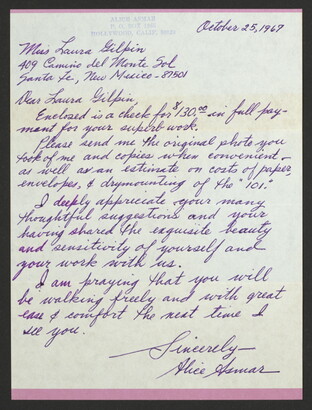 ALICE ASMAR
P. O. BOX 1965
HOLLYWOOD, CALIF. 90028
October 25, 1967
Miss Laura Gilpin
409 Camino del Monte Sol
Santa Fe, New Mexico - 87501
Dear Laura Gilpin,
Enclosed is a check for $130.00 in full pay-
ment for your superb work.
Please send me the original photo you
took of me and copies when convenient -
as well as an estimate on costs of paper,
envelopes, & drymounting of the "101."
I deeply appreciate your many
thoughtful suggestions and your
having shared the exquisite beauty
and sensitivity of yourself and
your work with us.
I am praying that you will
be walking freely and with great
ease & comfort the next time I
see you.
Sincerely -
Alice Asmar